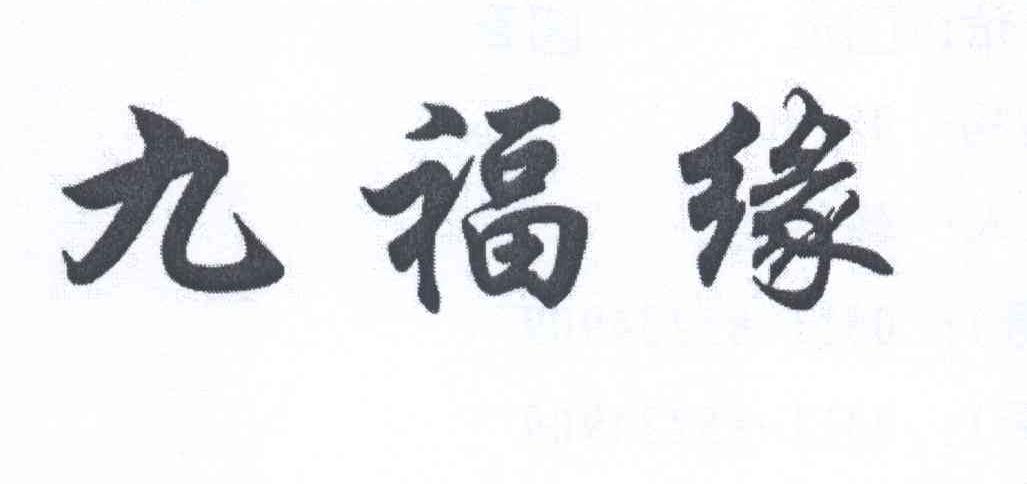 九福缘